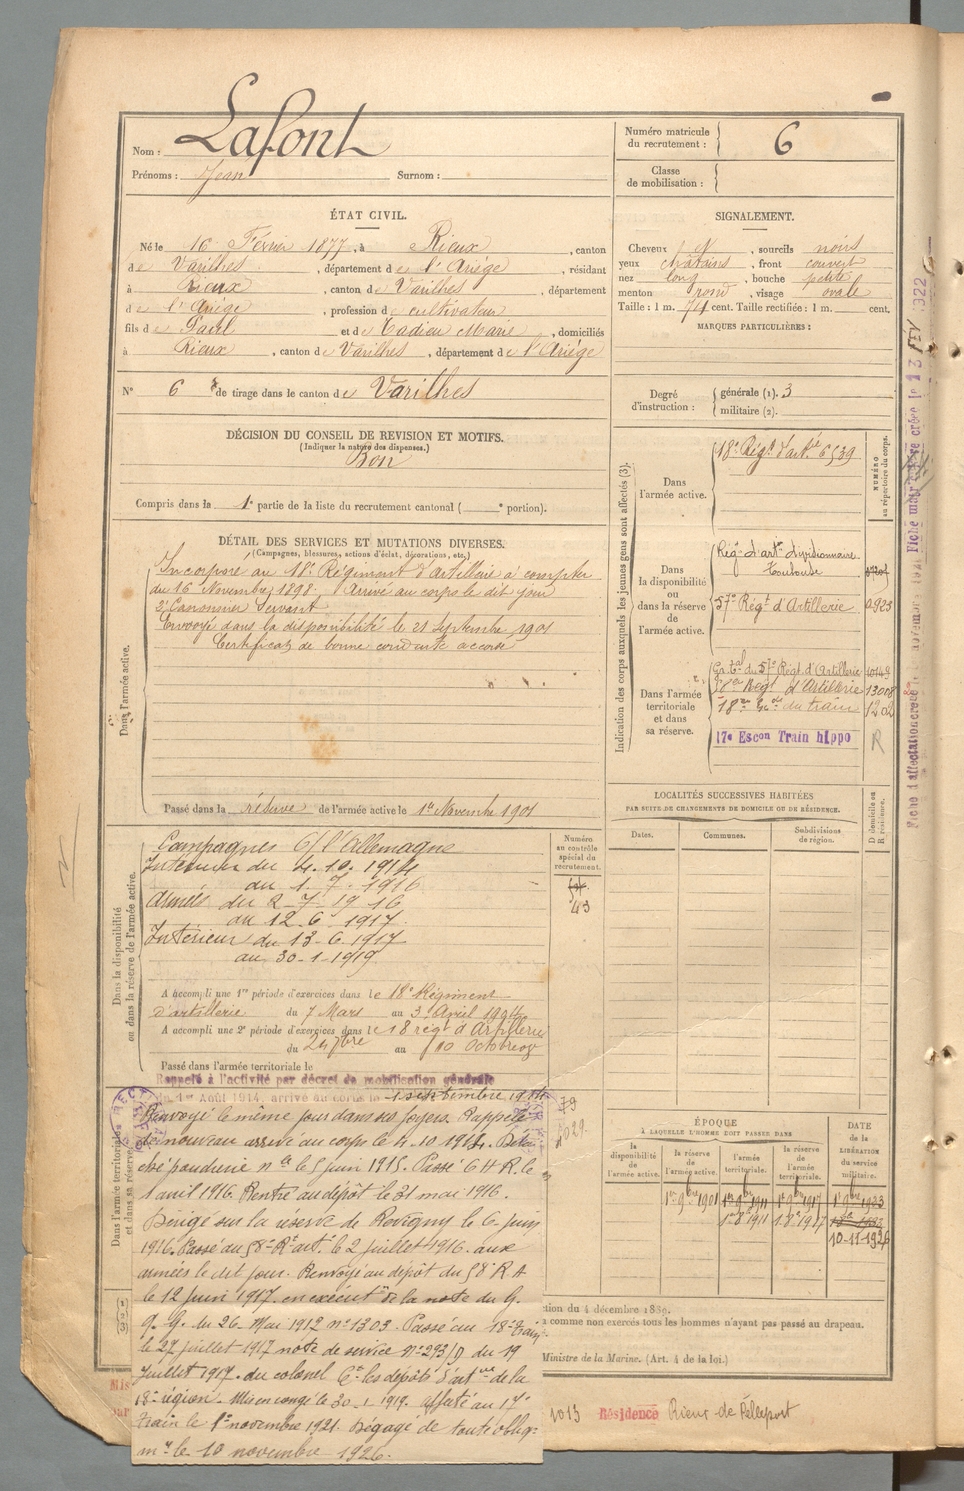 Nom : Lafont
Prénoms : Jean Surnom :
Numéro matricule du recrutement : 6
Classe de mobilisation :
ÉTAT CIVIL.
Né le 16 Février 1877, à Rieux, canton
de Varilhes, département de l'Ariège, résidant
à Rieux, canton de Varilhes, département
de l'Ariège, profession de cultivateur
fils de Paul et de Cadieu Marie, domiciliés
à Rieux, canton de Varilhes, département de l'Ariège
SIGNALEMENT.
Cheveux N, sourcils noirs
yeux châtains, front couvert
nez long, bouche petite
menton rond, visage ovale
Taille : 1 m. 74 cent. Taille rectifiée : 1 m. cent.
MARQUES PARTICULIÈRES :
N° 6 de tirage dans le canton de Varilhes
Degré d'instruction : générale (1). 3
militaire (2).
DÉCISION DU CONSEIL DE REVISION ET MOTIFS.
(Indiquer la nature des dispenses.)
Bon
Compris dans la 1e partie de la liste du recrutement cantonal ( e portion).
DÉTAIL DES SERVICES ET MUTATIONS DIVERSES.
(Campagnes, blessures, actions d'éclat, décorations, etc.)
Dans l'armée active.
Incorporé au 18e Régiment d'artillerie à compter
du 16 Novembre 1898. Arrivé au corps le dit jour
2e Canonnier Servant
Envoyé dans la disponibilité le 21 Septembre 1901
Certificat de bonne conduite accordé
Passé dans la réserve de l'armée active le 1er Novembre 1901
Indication des corps auxquels les jeunes gens sont affectés (3).
NUMÉRO au répertoire du corps.
Dans l'armée active.
18e Régt d'art.ie 6539
Dans la disponibilité ou dans la réserve de l'armée active.
Régt d'artie divisionnaire
Toulouse
57e Régt d'Artillerie 0923
Dans l'armée territoriale et dans sa réserve.
Gr. tal du 57e Régt d'Artillerie 10149
58e Régt d'Artillerie 13008
18me Eon du train 1202
17e Escon Train hippo R
LOCALITÉS SUCCESSIVES HABITÉES
PAR SUITE DE CHANGEMENTS DE DOMICILE OU DE RÉSIDENCE.
D domicile ou R résidence.
Dates. Communes. Subdivisions de région.
Dans la disponibilité ou dans la réserve de l'armée active.
Numéro au contrôle spécial du recrutement.
43
Campagnes C/ l'Allemagne
Intérieur du 4.10.1914
au 1.7.1916
Armées du 2-7-1916
au 12.6.1917
Intérieur du 13-6-1917
au 30-1-1919
A accompli une 1re période d'exercices dans le 18e Régiment
d'artillerie du 7 Mars au 3 Avril 1904
A accompli une 2e période d'exercices dans le 18 régt d'Artillerie
du 24 7bre au 10 Octobre
Passé dans l'armée territoriale le
Rappelé à l'activité par décret de mobilisation générale
du 1er Août 1914, arrivé au corps le 1 septembre 1914
Dans l'armée territoriale et dans sa réserve
Renvoyé le même jour dans ses foyers. Rappelé
de nouveau arrivé au corps le 4.10.1914. Déta-
ché poudrerie nle le 5 juin 1915. Passé 6 H R. le
1 avril 1916. Rentré au dépôt le 31 mai 1916.
Dirigé sur la réserve de Revigny le 6 juin
1916. Passé au 58e Rt art. le 2 juillet 1916. aux
armées le dit jour. Renvoyé au dépôt du 58e R A
le 12 juin 1917. en exécuton de la note du G.
Q. G. du 26 Mai 1912 n° 1303. Passé au 18e train
le 27 juillet 1917 note de service N° 293/D du 19
juillet 1917. du colonel Ct les dépôts d'artie de la
18e région. Mis en congé le 30-1-1919. affecté au 17e
train le 1er novembre 1921. Dégagé de toute oblig-
on mre le 10 novembre 1926.
ÉPOQUE
À LAQUELLE L'HOMME DOIT PASSER DANS
la disponibilité de l'armée active. la réserve de l'armée active. l'armée territoriale. la réserve de l'armée territoriale.
DATE de la LIBÉRATION du service militaire.
1er 9bre 1901 1er 9bre 1911 1er 9bre 1917 1er 9bre 1923
10-11-1926
tion du 4 décembre 1889.
à comme non exercés tous les hommes n'ayant pas passé au drapeau.
Ministre de la Marine. (Art. 4 de la loi.)
1013 Résidence Rieux de Pelleport